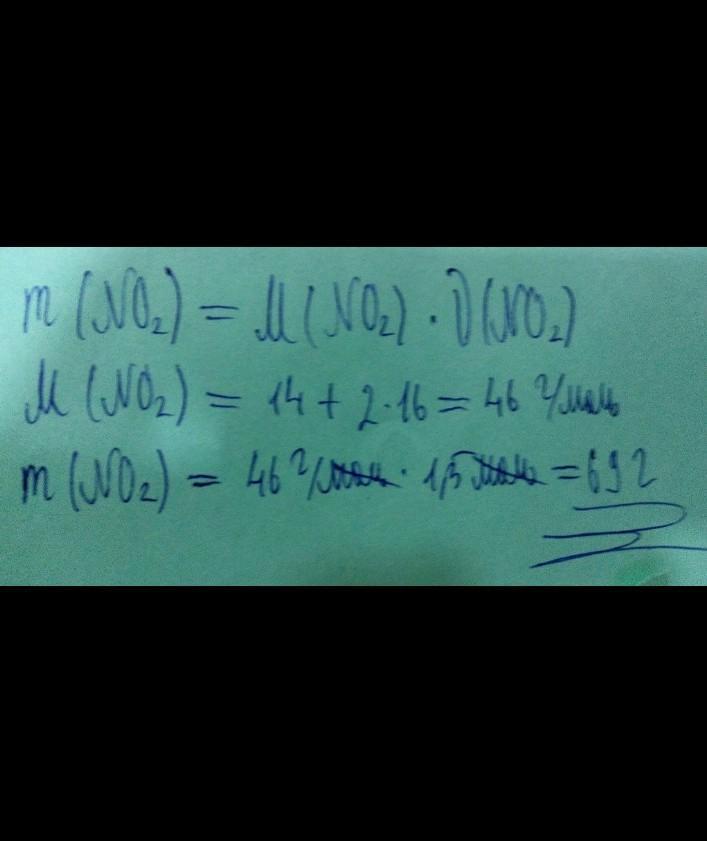 m (NO₂) = M (NO₂) · ν (NO₂)
M (NO₂) = 14 + 2·16 = 46 г/моль
m (NO₂) = 46 г/моль · 1,5 моль = 69 г